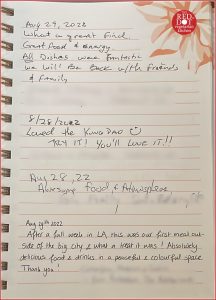 RED DOT
vegetarian
Kitchen
Aug 29, 2022
What a great Find.
Great food & energy.
All Dishes were Fantastic
we will Be Back with Friends
& Family
8/28/2022
Loved the KUNG PAO
TRY IT! You'll LOVE IT!!
Aug 28, 22
Awesome Food & Atmosphere,
!
Aug 29th 2022
After a full week in LA, this was our first meal out-
side of the big city & what a treat it was! Absolutely
delicious food & drinks in a peaceful & colourful space
Thank you!